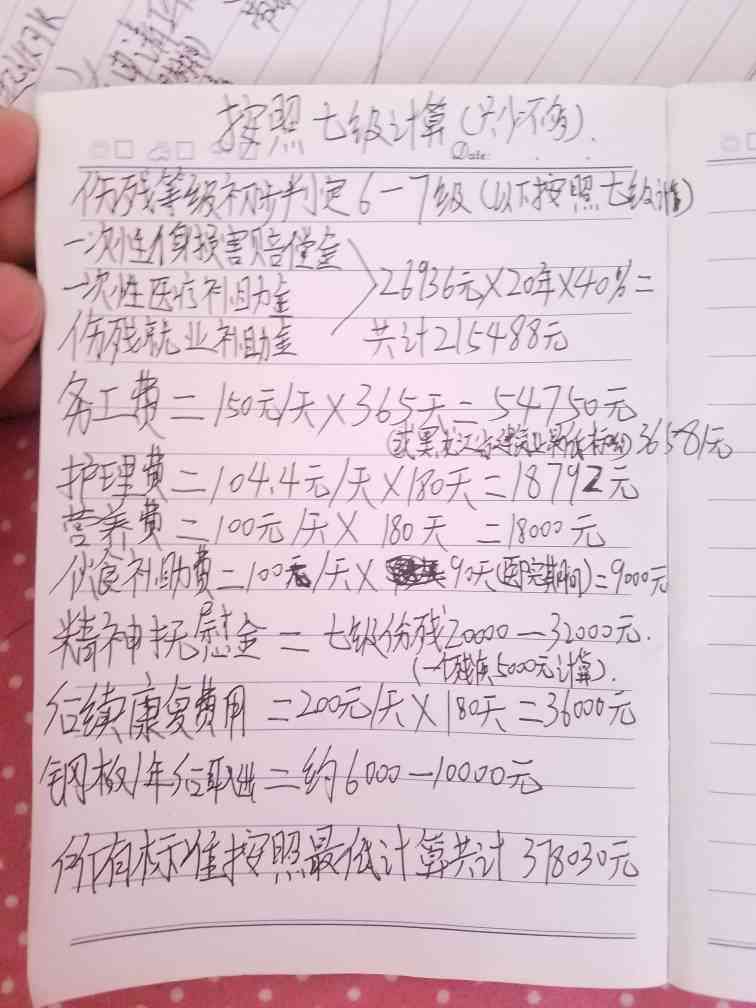 申请工伤
按照七级计算(只少不多).
Date:
伤残等级初步判定6一7级(以下按照七级计算)
一次性伤身损害赔偿金
一次性医疗补助金
伤残就业补助金
26936元×20年×40%=
共计215488元
务工费=150元/天×365天=54750元
(或黑龙江省建筑业最低标准)36581元
护理费=104.4元/天×180天=18792元
营养费=100元/天× 180天 =18000元
伙食补助费=100元/天× 90天(医院期间)=9000元
精神抚慰金=七级伤残20000一32000元.
(一个残疾5000元计算).
后续康复费用=200元/天×180天=36000元
钢板1年后取出=约6000一10000元
所有标准按照最低计算共计378030元